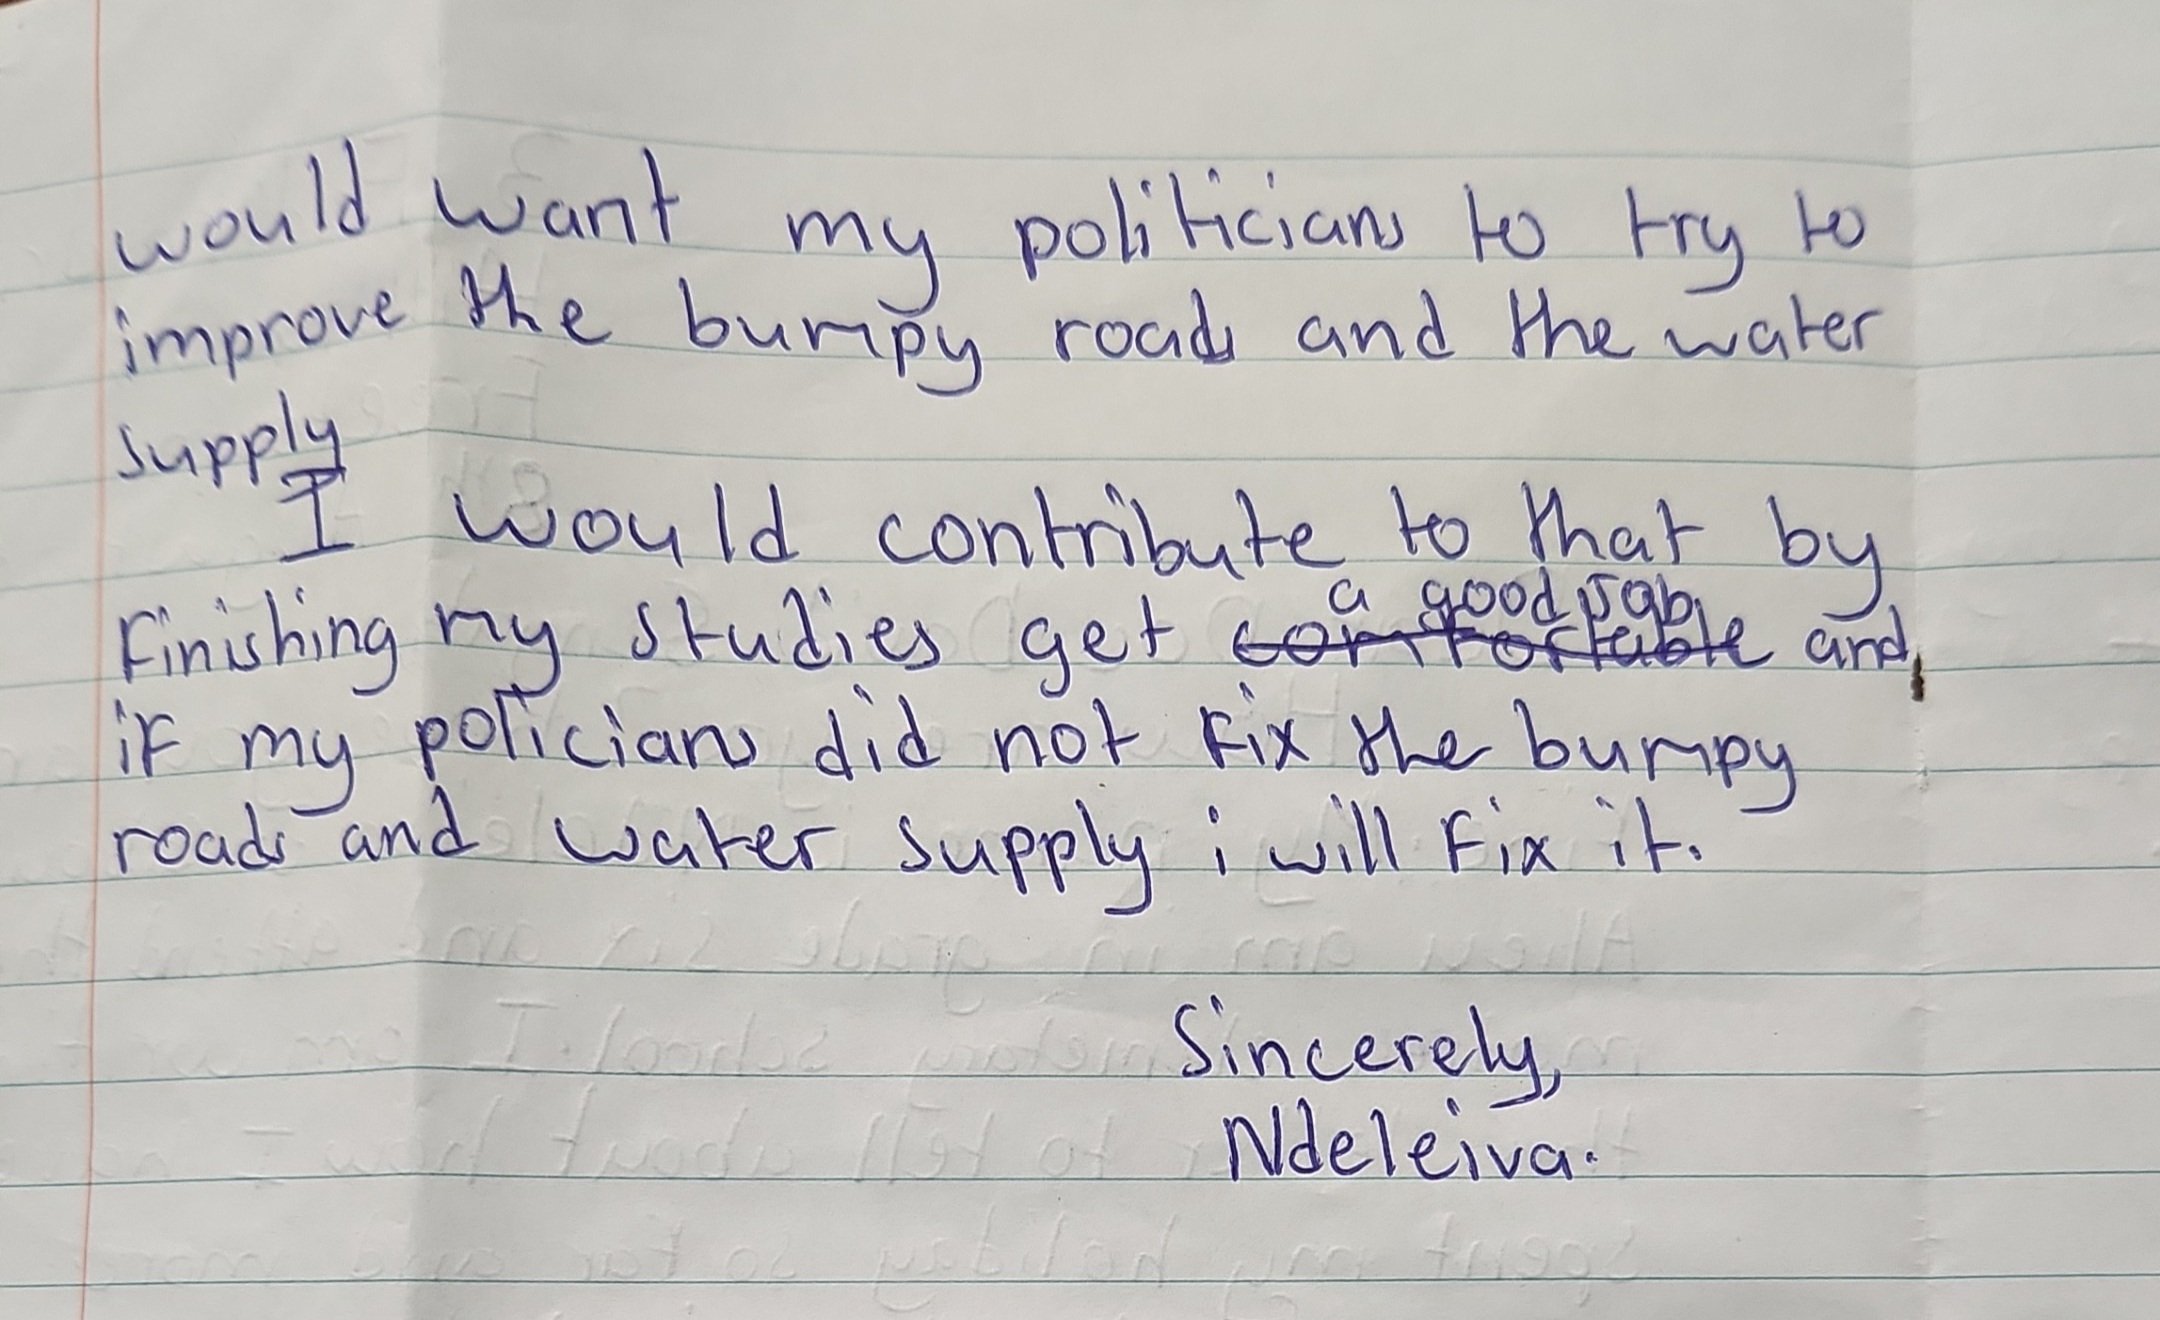 would want my politicians to try to
improve the bumpy roads and the water
supply
I would contribute to that by
a good Job
finishing my studies get comfortable and
if my policians did not fix the bumpy
roads and water supply i will fix it.
Sincerely,
Ndeleiva.